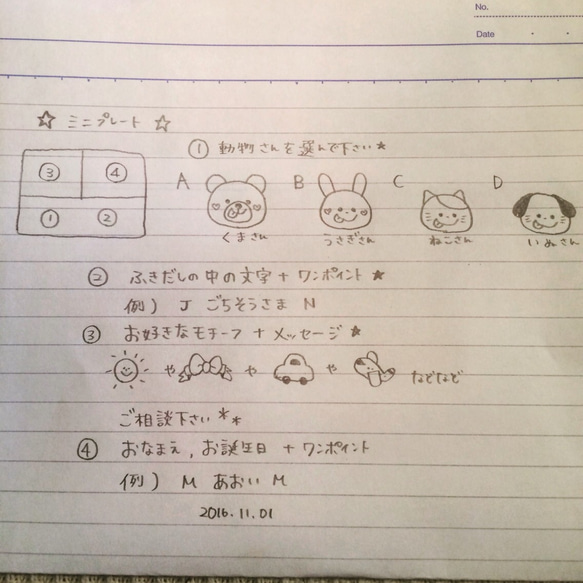 No.
Date
☆ ミニプレート ☆
① 動物さんを選んで下さい★
③ ④
① ②
A B C D
くまさん うさぎさん ねこさん いぬさん
② ふきだしの中の文字 + ワンポイント ★
例) J ごちそうさま N
③ お好きなモチーフ + メッセージ ★
や や や などなど
ご相談下さい **
④ おなまえ, お誕生日 + ワンポイント
例) M あおい M
2016.11.01